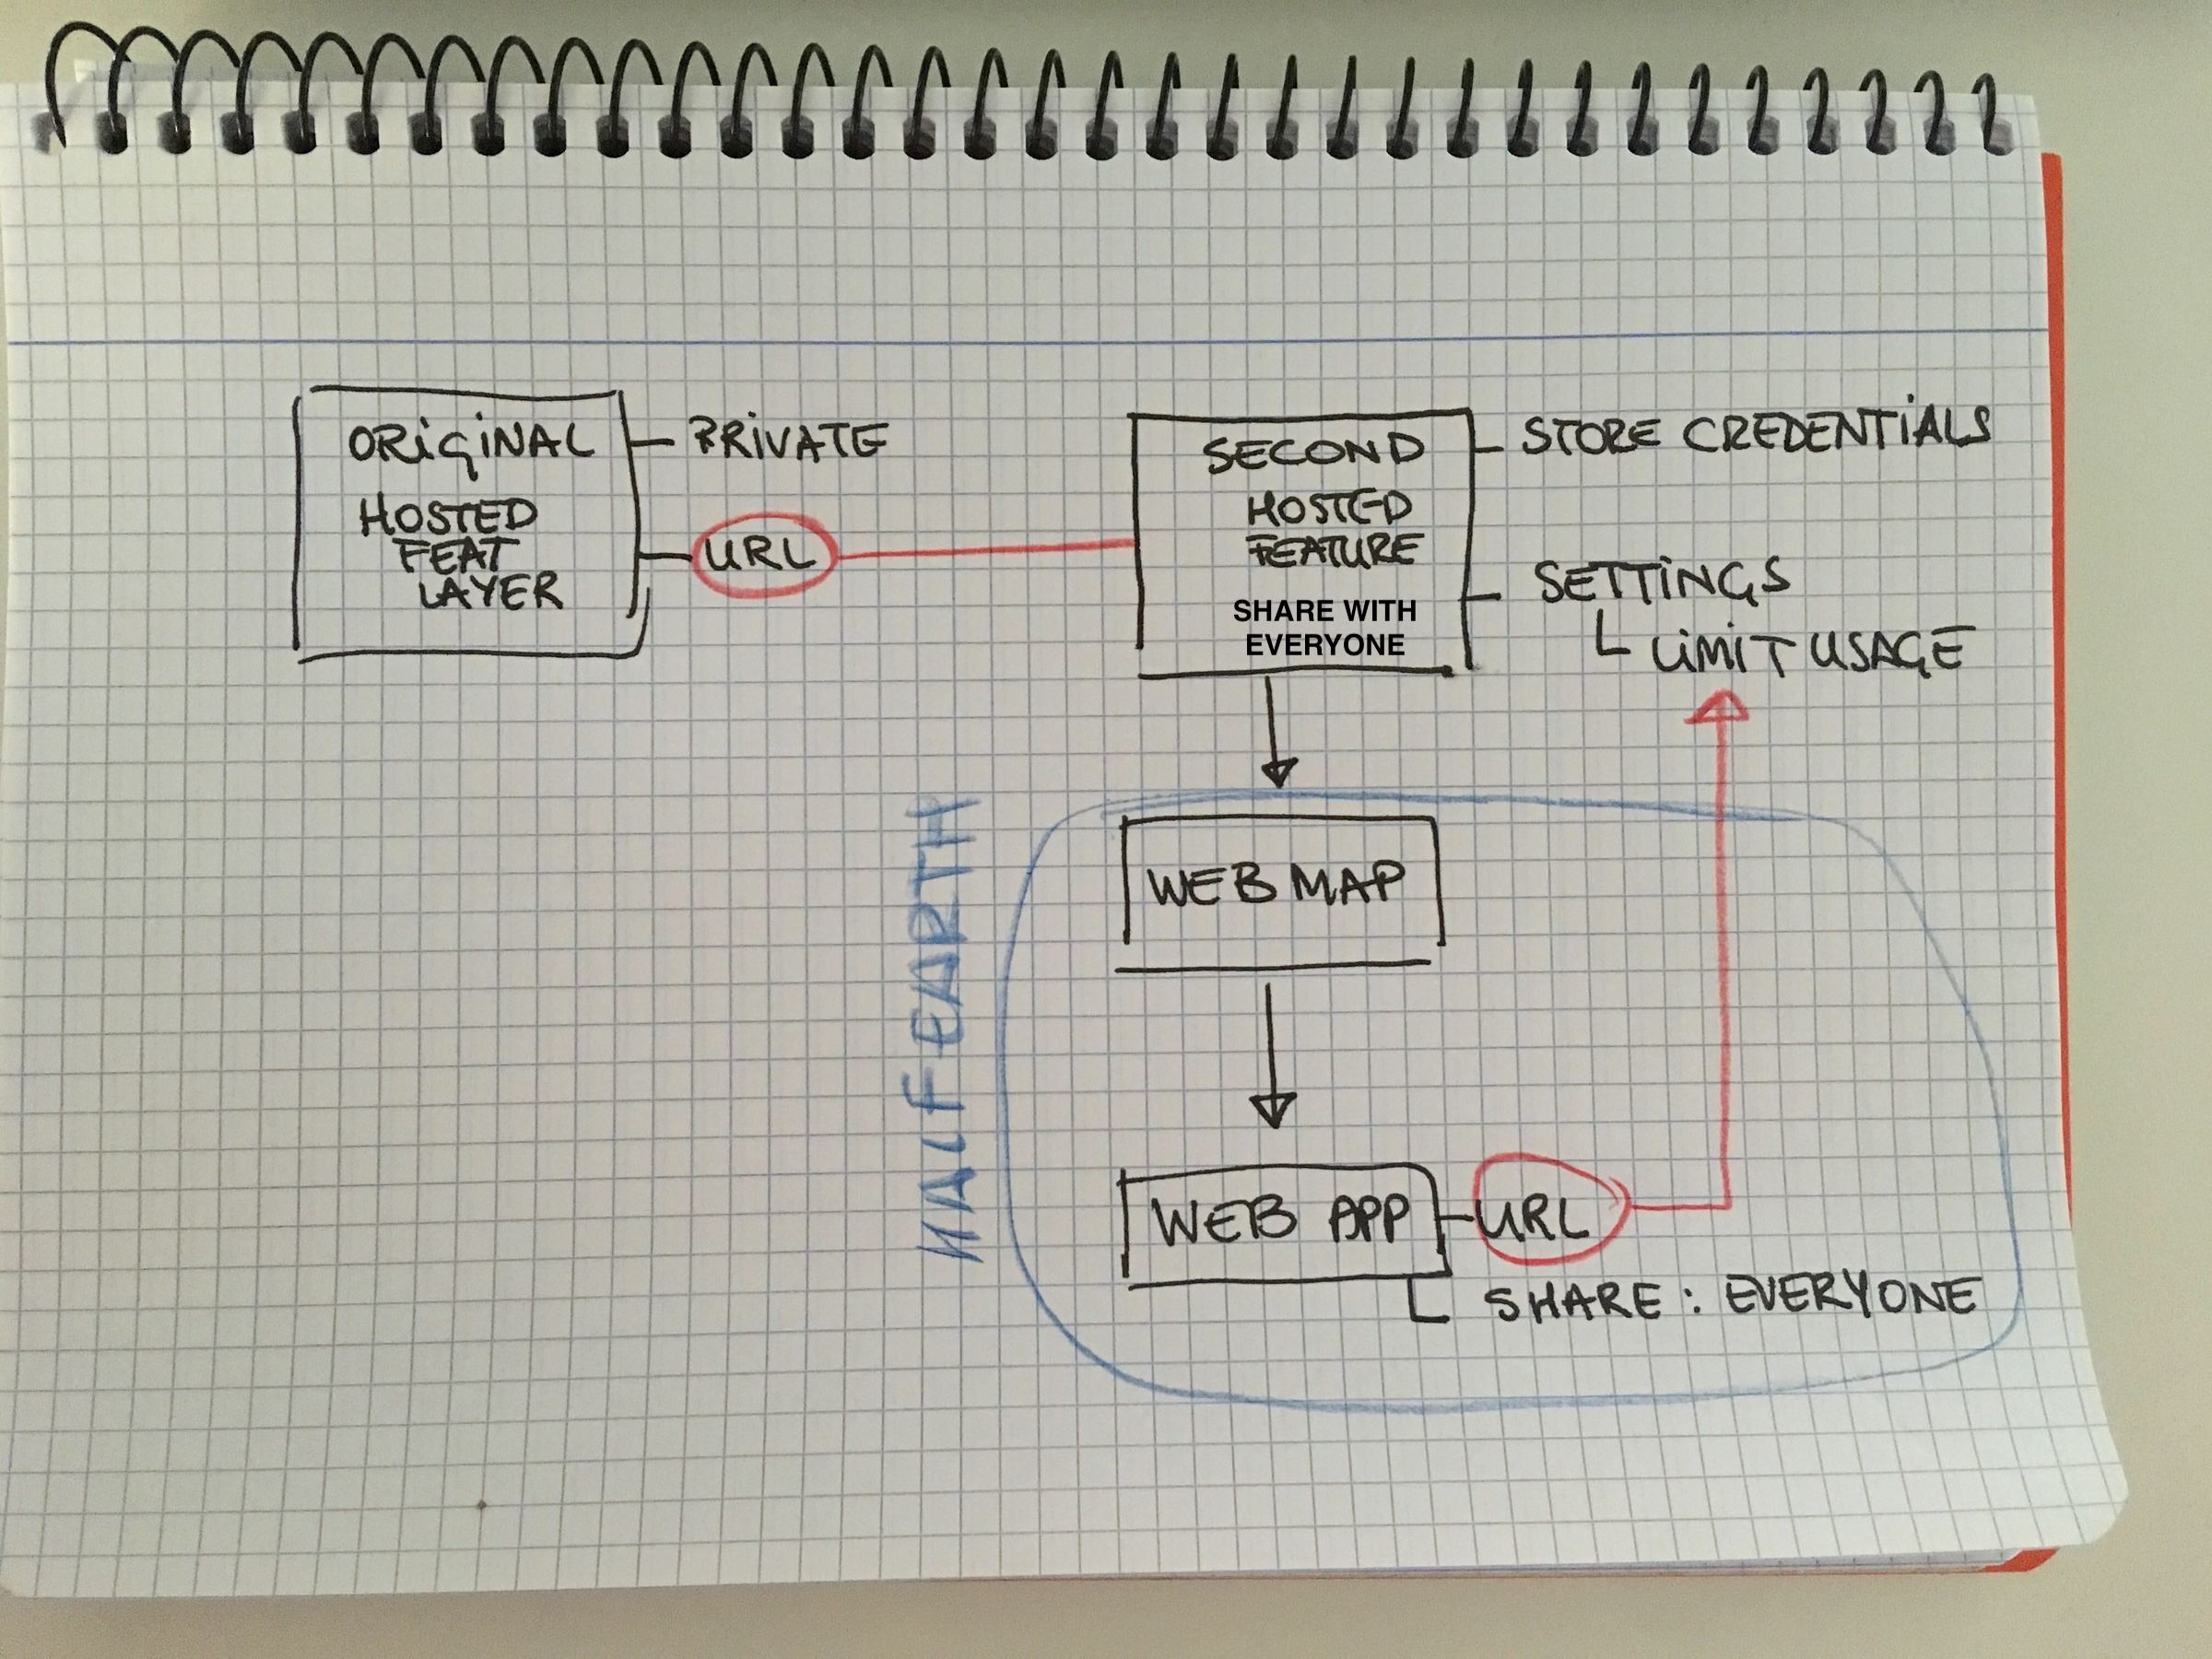 ORIGINAL
HOSTED
FEAT
LAYER
PRIVATE
URL
SECOND
HOSTED
FEATURE
SHARE WITH
EVERYONE
STORE CREDENTIALS
SETTINGS
LIMIT USAGE
HALF EARTH
WEB MAP
WEB APP
URL
SHARE: EVERYONE